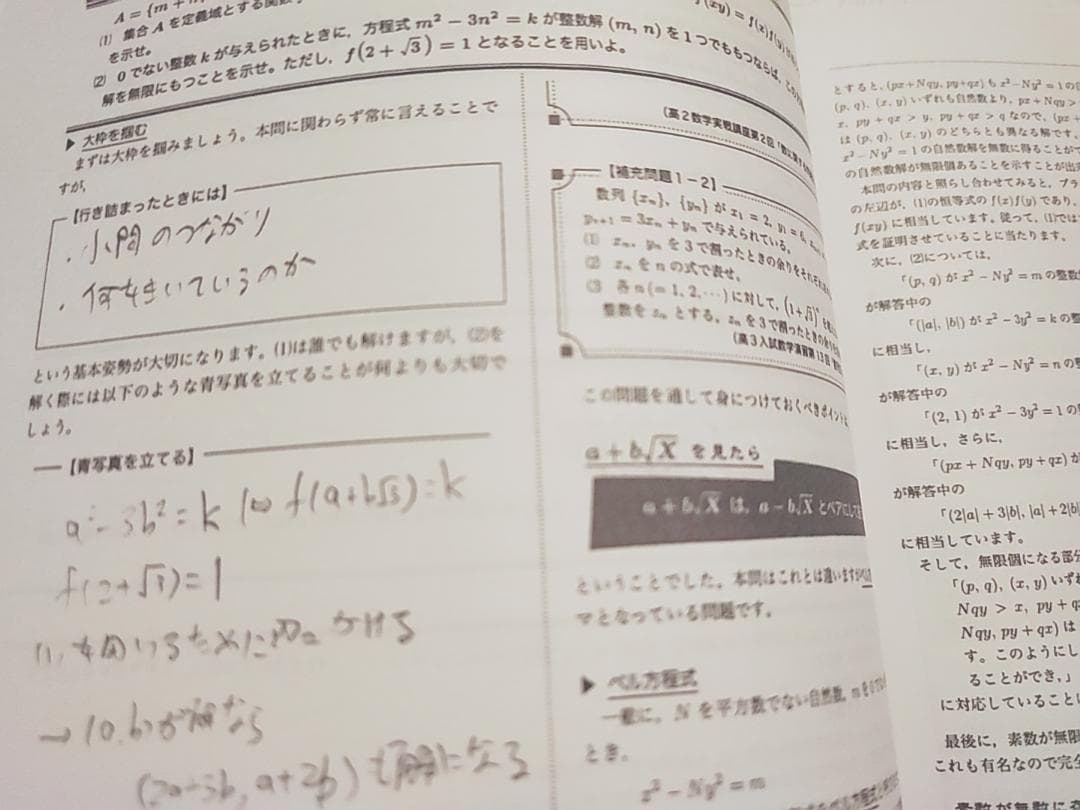 A = {m +
(1) 集合 A を定義域とする関数
を示せ。
(2) 0 でない整数 k が与えられたときに，方程式 m² − 3n² = k が整数解 (m, n) を 1 つでももつならば，
解を無限にもつことを示せ。ただし，f(2 + √3) = 1 となることを用いよ。
f(xy) = f(x)f(y)
▶ 大枠を掴む
まずは大枠を掴みましょう。本問に関わらず常に言えることで
すが，
【行き詰まったときには】
・小問のつながり
・何をきいているのか
という基本姿勢が大切になります。(1)は誰でも解けますが，(2)を
解く際には以下のような青写真を立てることが何よりも大切で
しょう。
【青写真を立てる】
a² − 3b² = k f(a+b√3) = k
f(2+√3) = 1
(1)を用いるために かける
→ (a,b)が解なら
(2a+3b, a+2b)も解になる
(高２数学実戦講座第２回
【補充問題１−２】
数列 {xₙ}, {yₙ} が x₁ = 2, y₁ = 6,
yₙ₊₁ = 3xₙ + yₙ で与えられている。
(1) xₙ, yₙ を 3 で割ったときの余りをそれぞれ
(2) xₙ を n の式で表せ。
(3) 各 n(= 1, 2, ⋯) に対して，(1+√3)ⁿ
整数を zₙ とする。zₙ を 3 で割ったときの余り
(高３入試数学演習第13回
この問題を通して身につけておくべきポイント
a + b√X を見たら
a + b√X は，a − b√X とペアにして
ということでした。本問はこれとは違いますが
マとなっている問題です。
▶ ペル方程式
一般に，N を平方数でない自然数，m を
とき，
x² − Ny² = m
とすると，(px + Nqy, py+qx) も x² − Ny² = 1 の
(p, q), (x, y) いずれも自然数より，px + Nqy >
x, py + qx > y, py + qx > q なので，(px +
は (p, q), (x, y) のどちらとも異なる解です。
x² − Ny² = 1 の自然数解を無数に得ることが
の自然数解が無限個あることを示すことが出
本問の内容と照らし合わせてみると，ブラ
の左辺が，(1)の恒等式の f(x)f(y) であり，
f(xy) に相当しています。従って，(1)では
式を証明させていることに当たります。
次に，(2)については，
「(p, q) が x² − Ny² = m の整数
が解答中の
「(|a|, |b|) が x² − 3y² = k の整
に相当し，
「(x, y) が x² − Ny² = n の
が解答中の
「(2, 1) が x² − 3y² = 1 の
に相当し，さらに，
「(px + Nqy, py + qx) が
が解答中の
「(2|a| + 3|b|, |a| + 2|b|
に相当しています。
そして，無限個になる部分
「(p, q), (x, y) いずれ
Nqy > x, py + q
Nqy, py + qx) は
す。このようにし
ることができ，」
に対応していること
最後に，素数が無限
これも有名なので完全
素数が無数に